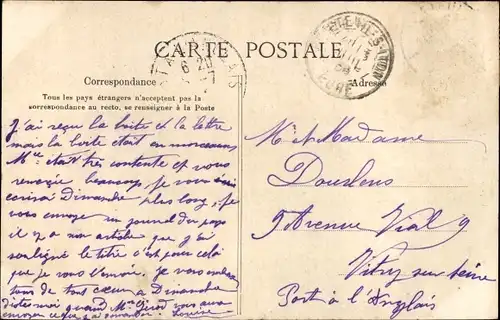 CARTE POSTALE
Correspondance
Adresse
Tous les pays étrangers n'acceptent pas la
correspondance au recto, se renseigner à la Poste
J'ai reçu la boite et la lettre
mais la boite était en morceaux
Mme était très contente et vous
remercie beaucoup je vous
écrirai Dimanche plus long; je
vous envoye un journal du pays
il y a un article que j'ai
souligné le titre c'est pour celà
que je vous l'envoie. je vous embra
tous de tout cœur à Dimanche
dites moi quand Mme vous aura
envoyer ce que j'ai Louise
M. et Madame
Douslens
9 Avenue Vial 9
Vitry sur Seine
Port à l'Anglais